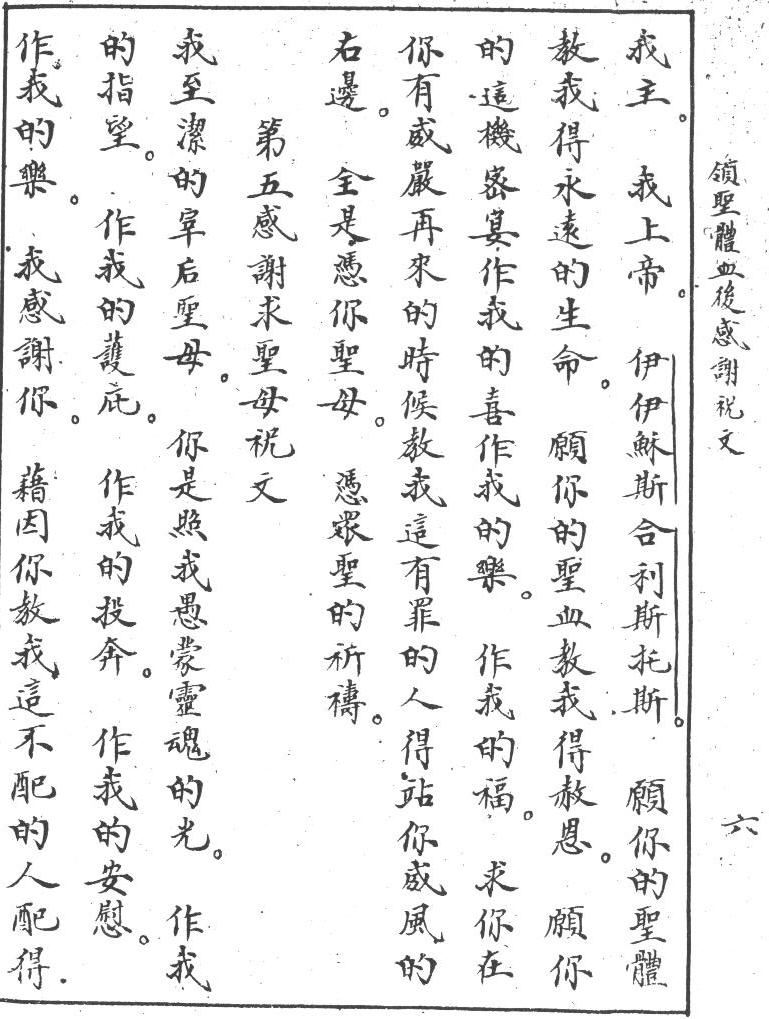 領聖體血後感謝祝文
六
我主。我上帝。伊伊穌斯合利斯托斯。願你的聖體
教我得永遠的生命。願你的聖血教我得赦恩。願你
的這機密宴作我的喜作我的樂。作我的福。求你在
你有威嚴再來的時候教我這有罪的人得站你威風的
右邊。全是憑你聖母。憑眾聖的祈禱。
第五感謝求聖母祝文
我至潔的宰后聖母。你是照我愚蒙靈魂的光。作我
的指望。作我的護庇。作我的投奔。作我的安慰。
作我的樂。我感謝你。藉因你教我這不配的人配得